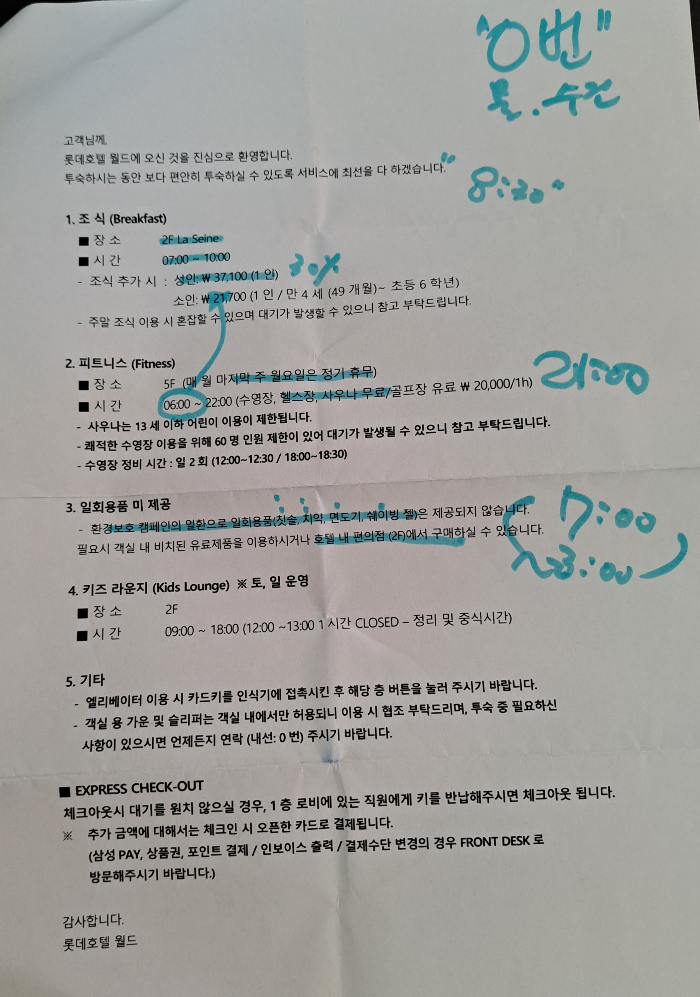 "0번"
물.수건
고객님께,
롯데호텔 월드에 오신 것을 진심으로 환영합니다.
투숙하시는 동안 보다 편안히 투숙하실 수 있도록 서비스에 최선을 다 하겠습니다.
"8:30"
1. 조 식 (Breakfast)
■ 장 소 2F La Seine
■ 시 간 07:00 ~ 10:00
- 조식 추가 시 : 성인: ₩ 37,100 (1 인) 30%
소인: ₩ 21,700 (1 인 / 만 4 세 (49 개월)~ 초등 6 학년)
- 주말 조식 이용 시 혼잡할 수 있으며 대기가 발생할 수 있으니 참고 부탁드립니다.
2. 피트니스 (Fitness)
■ 장 소 5F (매 월 마지막 주 월요일은 정기 휴무)
■ 시 간 06:00 ~ 22:00 (수영장, 헬스장, 사우나 무료/골프장 유료 ₩ 20,000/1h) 21:00
- 사우나는 13 세 이하 어린이 이용이 제한됩니다.
- 쾌적한 수영장 이용을 위해 60 명 인원 제한이 있어 대기가 발생될 수 있으니 참고 부탁드립니다.
- 수영장 정비 시간 : 일 2 회 (12:00~12:30 / 18:00~18:30)
3. 일회용품 미 제공
- 환경보호 캠페인의 일환으로 일회용품(칫솔, 치약, 면도기, 쉐이빙 젤)은 제공되지 않습니다.
필요시 객실 내 비치된 유료제품을 이용하시거나 호텔 내 편의점 (2F)에서 구매하실 수 있습니다.
(7:00
~23:00)
4. 키즈 라운지 (Kids Lounge) ※ 토, 일 운영
■ 장 소 2F
■ 시 간 09:00 ~ 18:00 (12:00 ~13:00 1 시간 CLOSED – 정리 및 중식시간)
5. 기타
- 엘리베이터 이용 시 카드키를 인식기에 접촉시킨 후 해당 층 버튼을 눌러 주시기 바랍니다.
- 객실 용 가운 및 슬리퍼는 객실 내에서만 허용되니 이용 시 협조 부탁드리며, 투숙 중 필요하신
사항이 있으시면 언제든지 연락 (내선: 0 번) 주시기 바랍니다.
■ EXPRESS CHECK-OUT
체크아웃시 대기를 원치 않으실 경우, 1 층 로비에 있는 직원에게 키를 반납해주시면 체크아웃 됩니다.
※ 추가 금액에 대해서는 체크인 시 오픈한 카드로 결제됩니다.
(삼성 PAY, 상품권, 포인트 결제 / 인보이스 출력 / 결제수단 변경의 경우 FRONT DESK 로
방문해주시기 바랍니다.)
감사합니다.
롯데호텔 월드